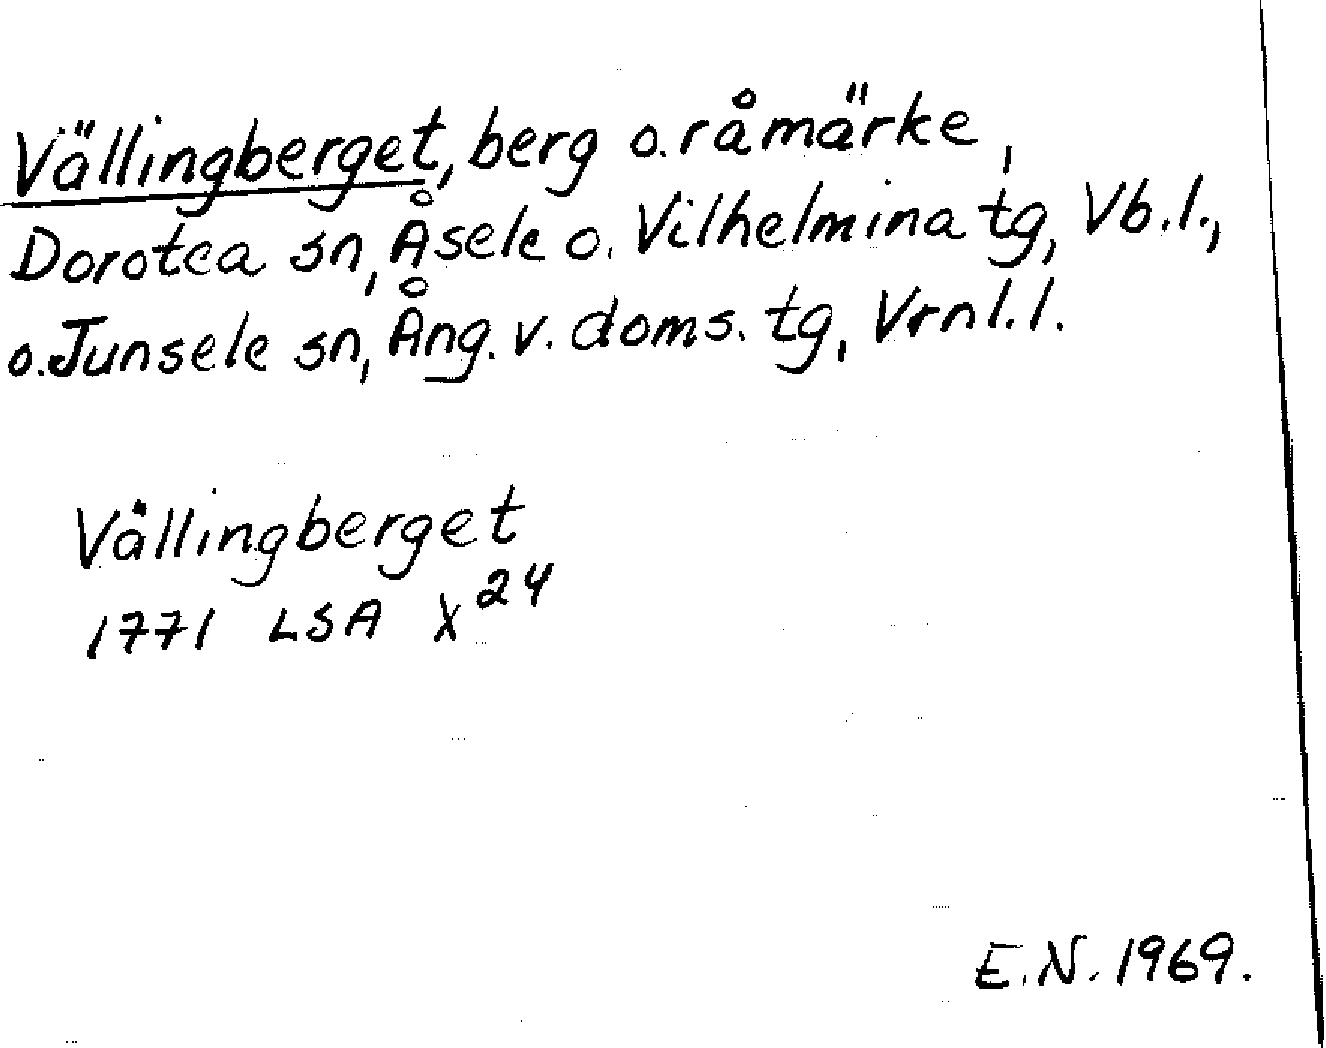 Vällingberget, berg o. råmärke,
Dorotea sn, Åsele o. Vilhelmina tg, Vb.l.,
o. Junsele sn, Ång. v. doms. tg, Vrnl.l.
Vällingberget
1771 LSA X 24
E.N. 1969.